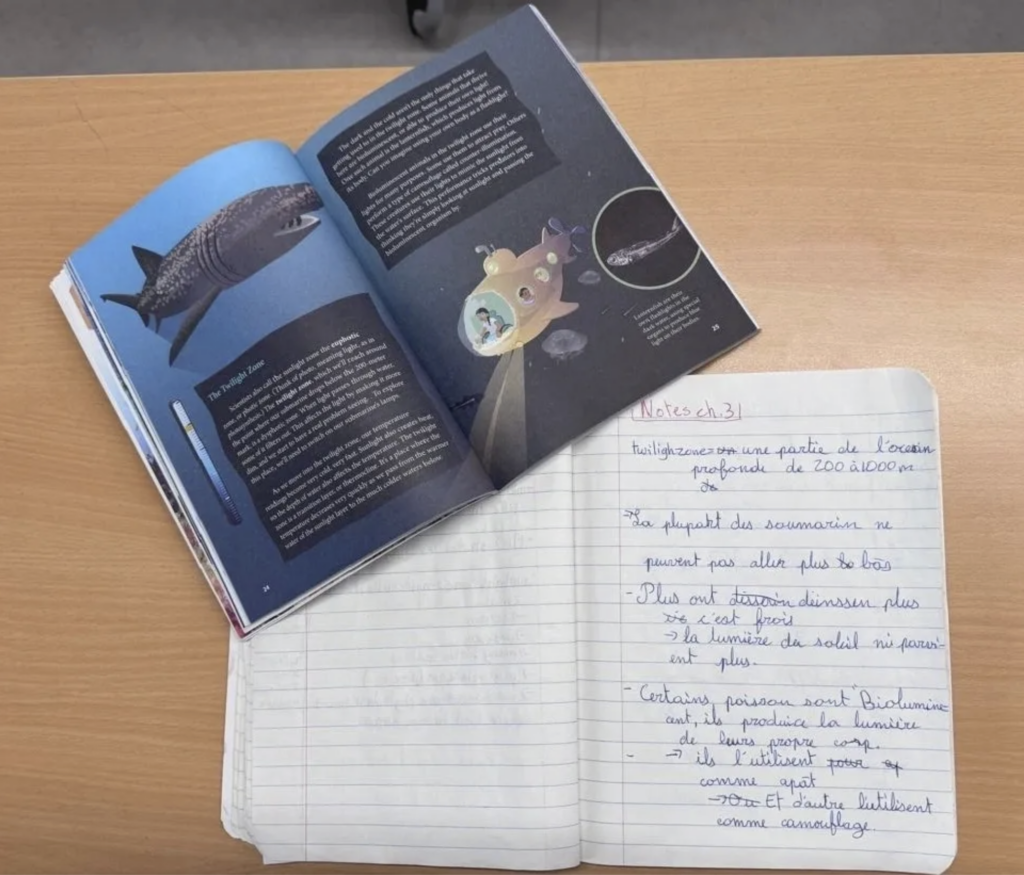 The Twilight Zone
Scientists also call the sunlight zone the euphotic
zone, or photic zone. (Think of photo, meaning light, as in
photosynthesis.) The twilight zone, which we'll reach around
the point where our submarine drops below the 200-meter
mark, is a dysphotic zone. When light passes through water,
some of it filters out. This affects the light by making it more
dim, and we start to have a real problem seeing. To explore
this place, we'll need to switch on our submarine's lamps.
As we move into the twilight zone, our temperature
readings become very cold, very fast. Sunlight also creates heat,
so the depth of water also affects the temperature. The twilight
zone is a transition layer, or thermocline. It's a place where the
temperature decreases very quickly as we pass from the warmer
water of the sunlight layer to the much colder waters below.
24
The dark and the cold aren't the only things that take
getting used to in the twilight zone. Some animals that thrive
here are bioluminescent, or able to produce their own light!
One such animal is the lanternfish, which produces light from
its body. Can you imagine using your own body as a flashlight?
Bioluminescent animals in the twilight zone use their
lights for many purposes. Some use them to attract prey. Others
perform a type of camouflage called counter-illumination.
These creatures use their lights to mimic the sunlight from
the water's surface. This performance tricks predators into
thinking they're simply looking at sunlight and passing the
bioluminescent organism by.
Lanternfish are their
own flashlights in the
dark water, using special
organs to produce blue
light on their bodies.
25
Notes ch.31
twilighzone= une partie de l'ocean
profonde de 200 à 1000 m
→La plupart des soumarin ne
peuvent pas aller plus bas
- Plus ont deinssen plus
c'est frois
→ la lumière du soleil ni parvi-
ent plus.
- Certains poisson sont Biolumine
ant, ils produice la lumière
de leurs propre corp.
- → ils l'utilisent
comme apat
→ Et d'autre l'utilisent
comme camouflage.